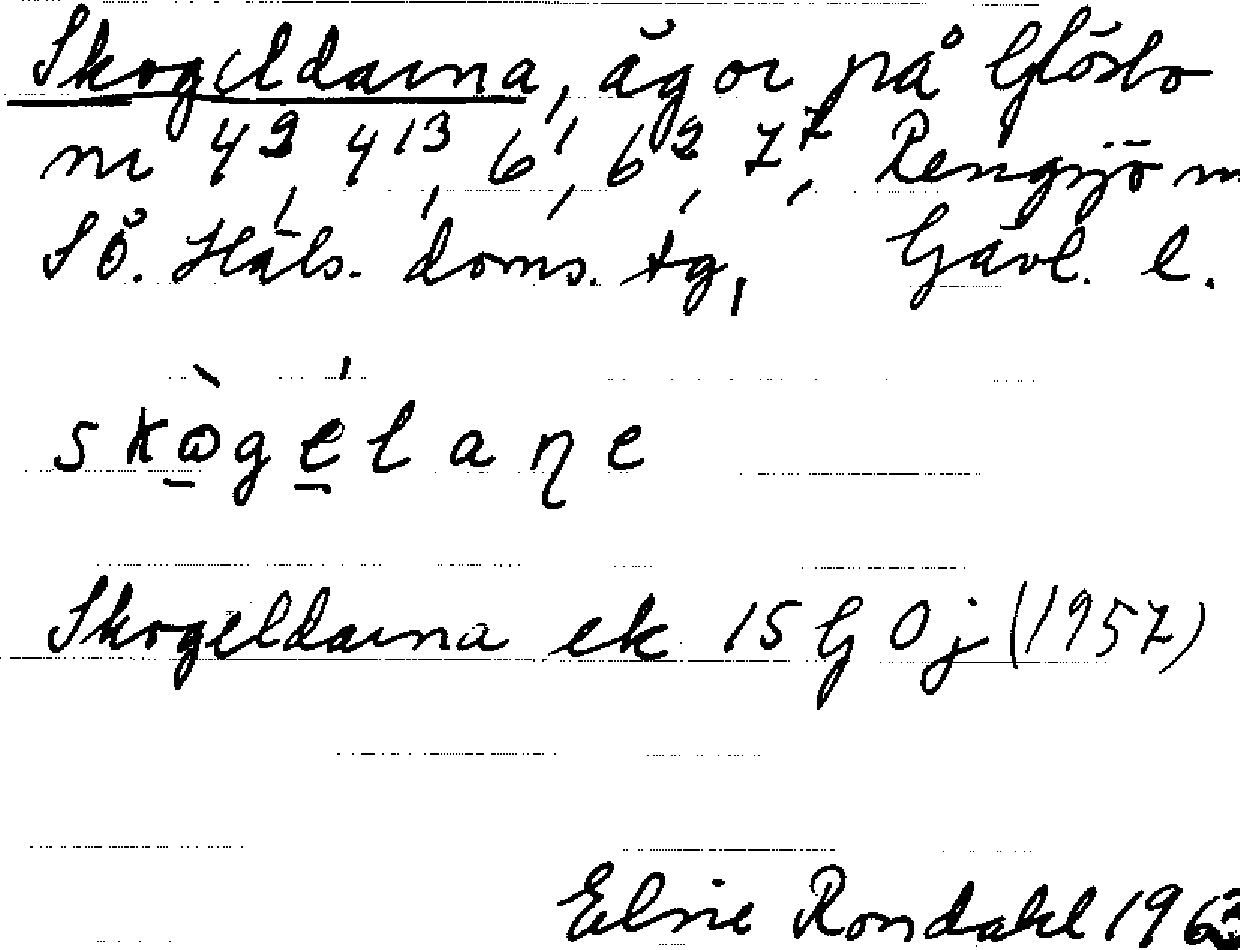 Skogeldarna, ägor på Glösbo
nr 4⁹, 4¹³, 6¹, 6², 7⁷, Rengsjö
Sö. Häls. doms. tg, Gävl. l.
skògélaŋe
Skogeldarna ek 15 G 0 j (1957)
Elsie Rondahl 1963